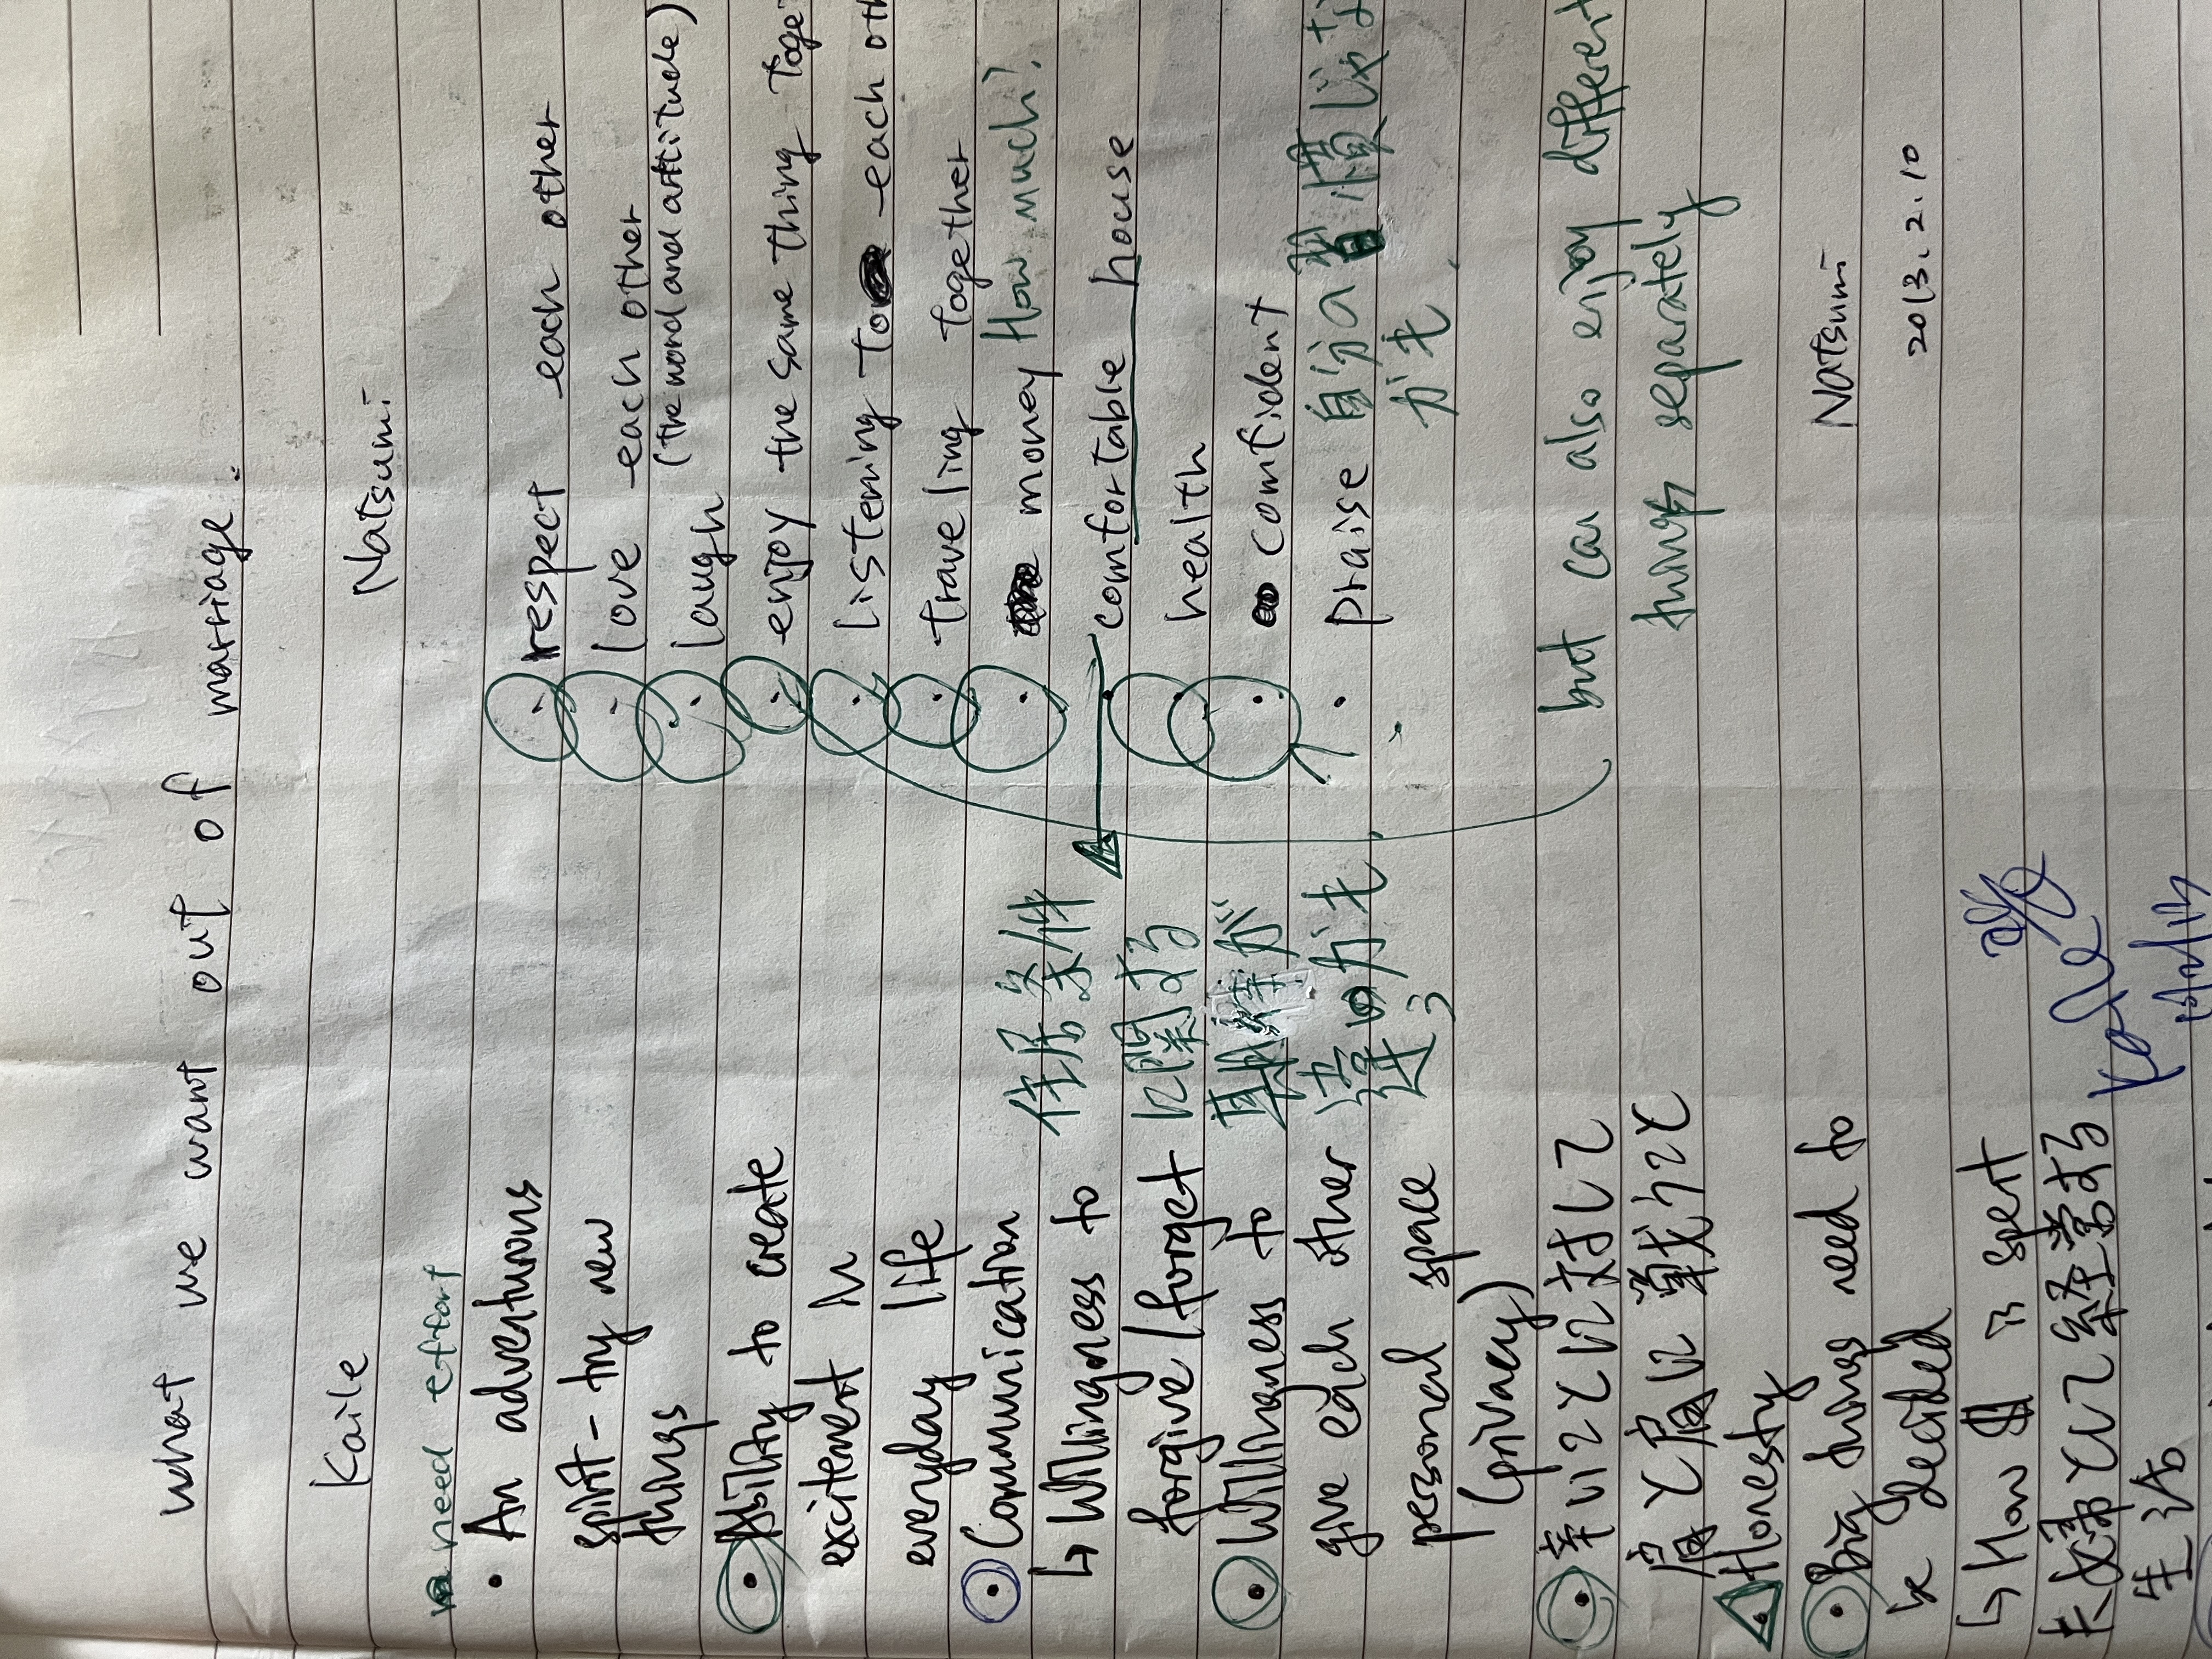 what we want out of marriage.
Kaile
need effort
• An adventurous
spirit - try new
things
• Ability to create
excitement in
everyday life
• Communication
↳ Willingness to
forgive / forget
• Willingness to
give each other
personal space
(privacy)
• 辛いことに対して
• Honesty
• Big things need to
be decided
↳ How is spent
夫婦として経営する
生活
住居条件
に関する
Natsumi
• respect each other
• love each other
(the word and attitude)
• laugh
• enjoy the same thing
• listening to each
• traveling together
• money How much?
• comfortable house
• health
• confident
• praise 自分の
but can also enjoy different
things separately
Natsumi
2013. 2. 10